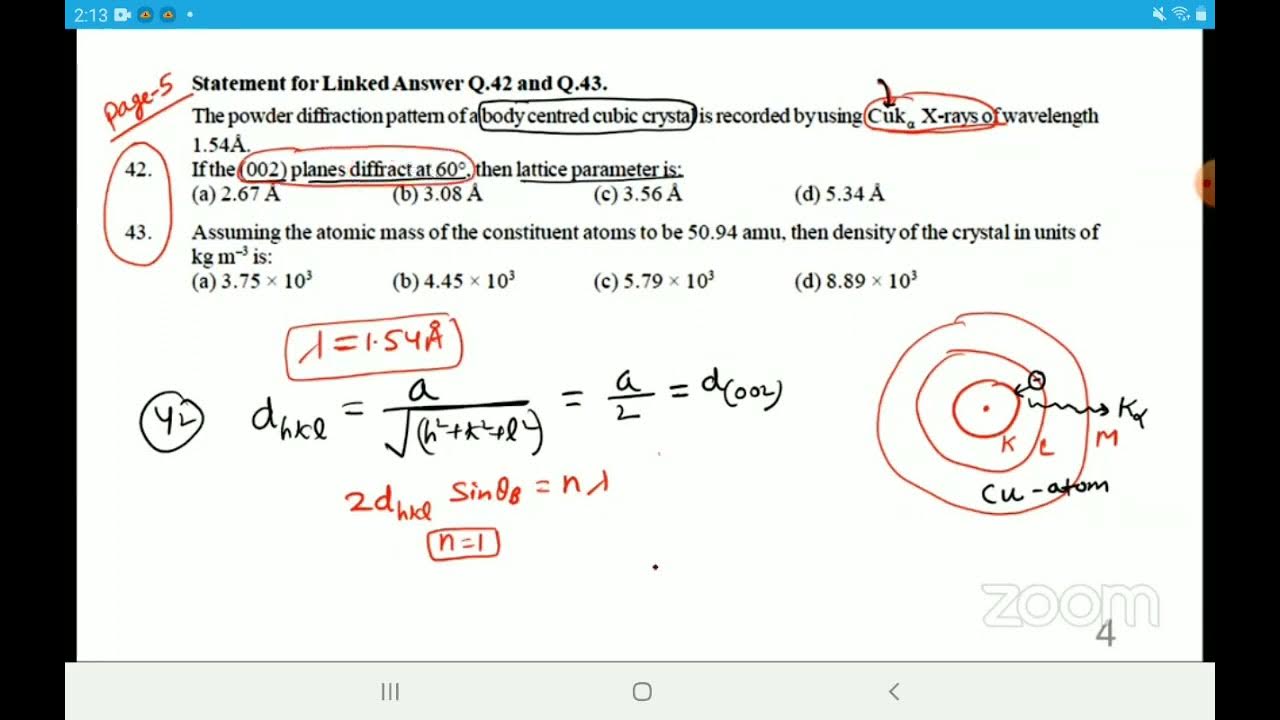 2:13
page-5
Statement for Linked Answer Q.42 and Q.43.
The powder diffraction pattern of a body centred cubic crystal is recorded by using Cukα X-rays of wavelength
1.54Å.
42. If the (002) planes diffract at 60°, then lattice parameter is:
(a) 2.67 Å (b) 3.08 Å (c) 3.56 Å (d) 5.34 Å
43. Assuming the atomic mass of the constituent atoms to be 50.94 amu, then density of the crystal in units of
kg m⁻³ is:
(a) 3.75 × 10³ (b) 4.45 × 10³ (c) 5.79 × 10³ (d) 8.89 × 10³
λ = 1.54Å
42 dhkl = a / √(h²+k²+l²) = a/2 = d(002)
2dhkl sinθB = nλ
n=1
Kα
K L M
Cu-atom
zoom
4